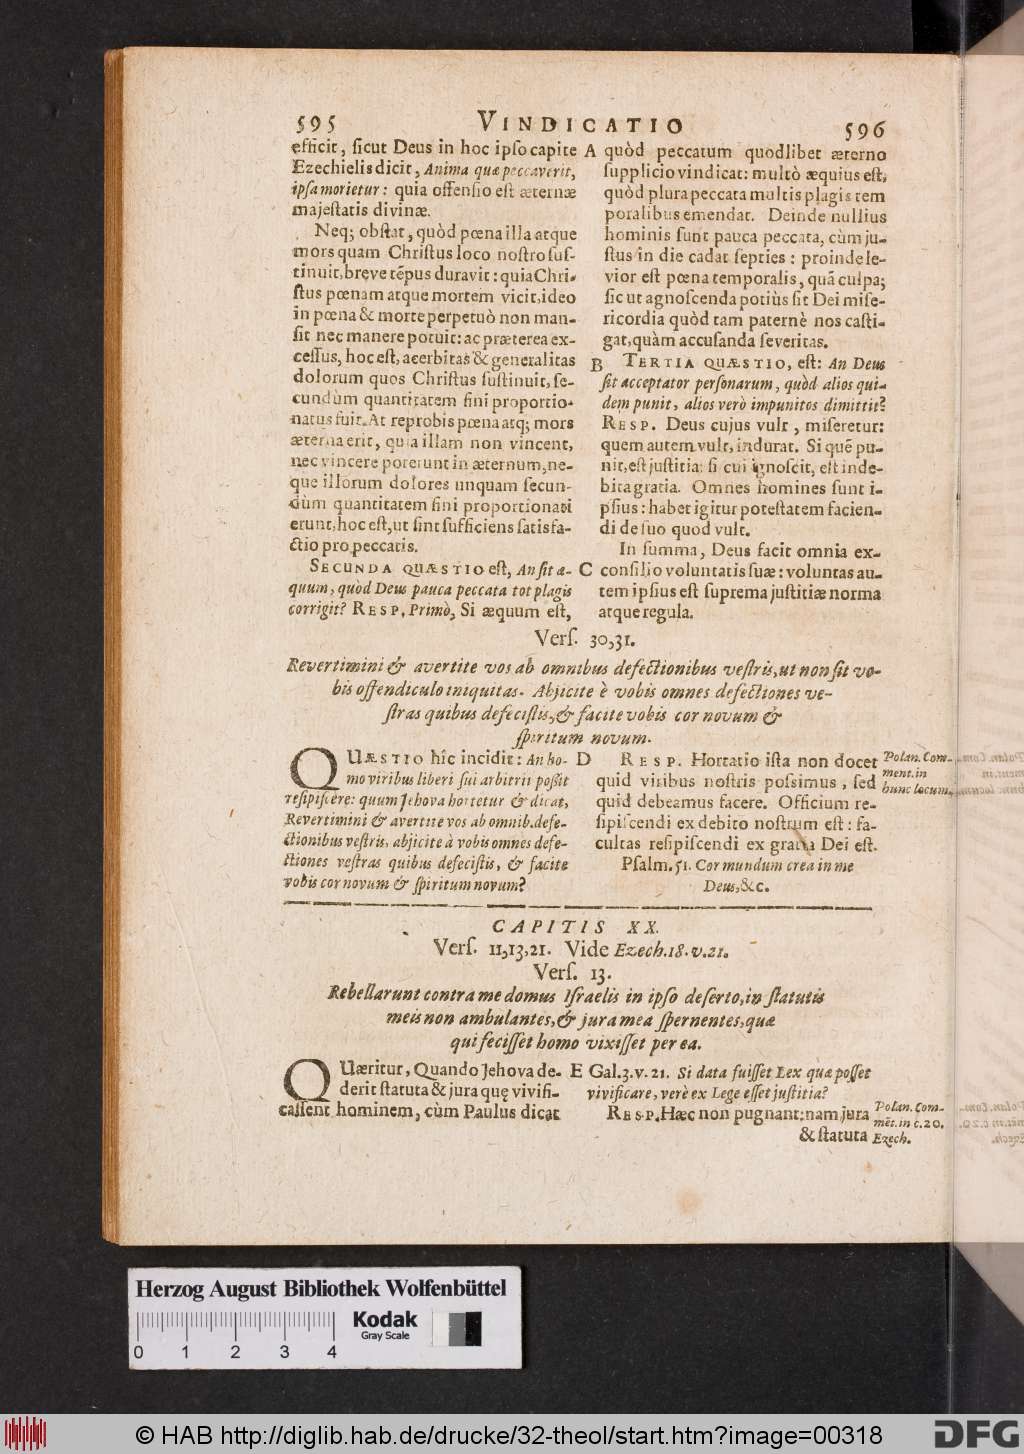 595 VINDICATIO 596
efficit, ſicut Deus in hoc ipſo capite
Ezechielis dicit, Anima quæ peccaverit,
ipſa morietur: quia offenſio eſt æternæ
majeſtatis divinæ.
Neq; obſtat, quòd pœna illa atque
mors quam Chriſtus loco noſtro ſuſ-
tinuit, breve tẽpus duravit: quia Chri-
ſtus pœnam atque mortem vicit, ideo
in pœna & morte perpetuò non man-
ſit nec manere potuit: ac præterea ex-
ceſſus, hoc eſt, acerbitas & generalitas
dolorum quos Chriſtus ſuſtinuit, ſe-
cundùm quantitatem fini proportio-
natus fuit. At reprobis pœna atq; mors
æterna erit, quia illam non vincent,
nec vincere poterunt in æternum, ne-
que illorum dolores unquam ſecun-
dùm quantitatem fini proportionati
erunt, hoc eſt, ut ſint ſufficiens ſatisfa-
ctio pro peccatis.
SECUNDA QUÆSTIO eſt, An ſit æ-
quum, quòd Deus pauca peccata tot plagis
corrigit? RESP. Primò, Si æquum eſt,
A quòd peccatum quodlibet æterno
ſupplicio vindicat: multò æquius eſt,
quòd plura peccata multis plagis tem
poralibus emendat. Deinde nullius
hominis ſunt pauca peccata, cùm ju-
ſtus in die cadat ſepties: proinde le-
vior eſt pœna temporalis, quã culpa;
ſic ut agnoſcenda potiùs ſit Dei miſe-
ricordia quòd tam paternè nos caſti-
gat, quàm accuſanda ſeveritas.
B TERTIA QUÆSTIO, eſt: An Deus
ſit acceptator perſonarum, quòd alios qui-
dem punit, alios verò impunitos dimittit?
RESP. Deus cujus vult, miſeretur:
quem autem vult, indurat. Si quẽ pu-
nit, eſt juſtitia: ſi cui ignoſcit, eſt inde-
bita gratia. Omnes homines ſunt i-
pſius: habet igitur poteſtatem facien-
di de ſuo quod vult.
In ſumma, Deus facit omnia ex
C conſilio voluntatis ſuæ: voluntas au-
tem ipſius eſt ſuprema juſtitiæ norma
atque regula.
Verſ. 30,31.
Revertimini & avertite vos ab omnibus defectionibus veſtris, ut non ſit vo-
bis offendiculo iniquitas. Abjicite è vobis omnes defectiones ve-
ſtras quibus defeciſtis, & facite vobis cor novum &
ſpiritum novum.
QUÆSTIO hîc incidit: An ho-
mo viribus liberi ſui arbitrii poſſit
reſipiſcere: quum Jehova hortetur & dicat,
Revertimini & avertite vos ab omnib. defe-
ctionibus veſtris, abjicite à vobis omnes defe-
ctiones veſtras quibus defeciſtis, & facite
vobis cor novum & ſpiritum novum?
D RESP. Hortatio iſta non docet
quid viribus noſtris poſſimus, ſed
quid debeamus facere. Officium re-
ſipiſcendi ex debito noſtrum eſt: fa-
cultas reſipiſcendi ex gratia Dei eſt.
Pſalm. 51. Cor mundum crea in me
Deus, &c.
Polan. Com-
ment. in
hunc locum.
CAPITIS XX.
Verſ. 11,13,21. Vide Ezech. 18. v. 21.
Verſ. 13.
Rebellarunt contra me domus Iſraelis in ipſo deſerto, in ſtatutis
meis non ambulantes, & jura mea ſpernentes, quæ
qui feciſſet homo vixiſſet per ea.
QUæritur, Quando Jehova de-
derit ſtatuta & jura quę vivifi-
caſſent hominem, cùm Paulus dicat
E Gal. 3. v. 21. Si data fuiſſet Lex quæ poſſet
vivificare, verè ex Lege eſſet juſtitia?
RESP. Hæc non pugnant: nam jura
& ſtatuta
Polan. Com-
mẽt. in c. 20.
Ezech.
Herzog August Bibliothek Wolfenbüttel
Kodak
Gray Scale
0 1 2 3 4
© HAB http://diglib.hab.de/drucke/32-theol/start.htm?image=00318
DFG